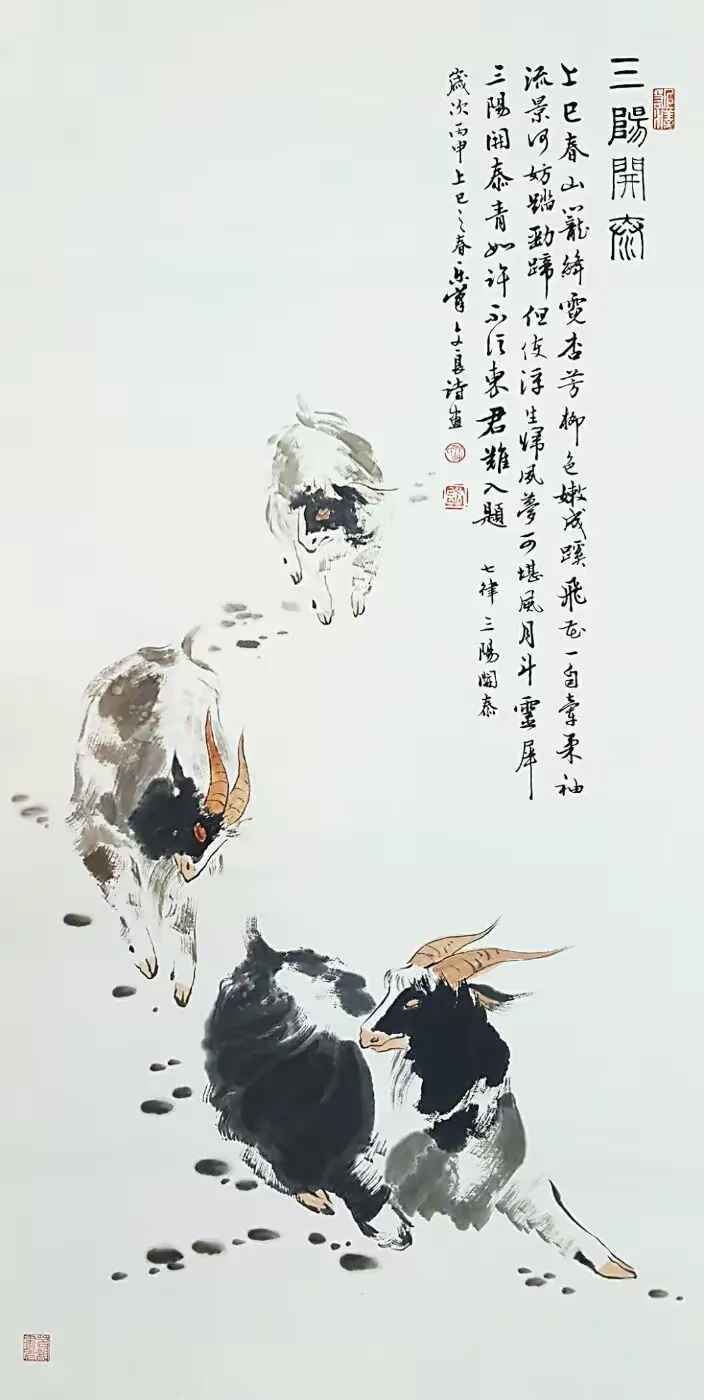 三陽開泰
上巳春山籠絳霓杏芳柳色嫩成蹊飛花一自牽柔袖
流景何妨踏勁蹄但使浮生歸夙夢可堪風月斗靈犀
三陽開泰青如許不信東君難入題 七律三陽開泰
歲次丙申上巳之春 文良詩畫